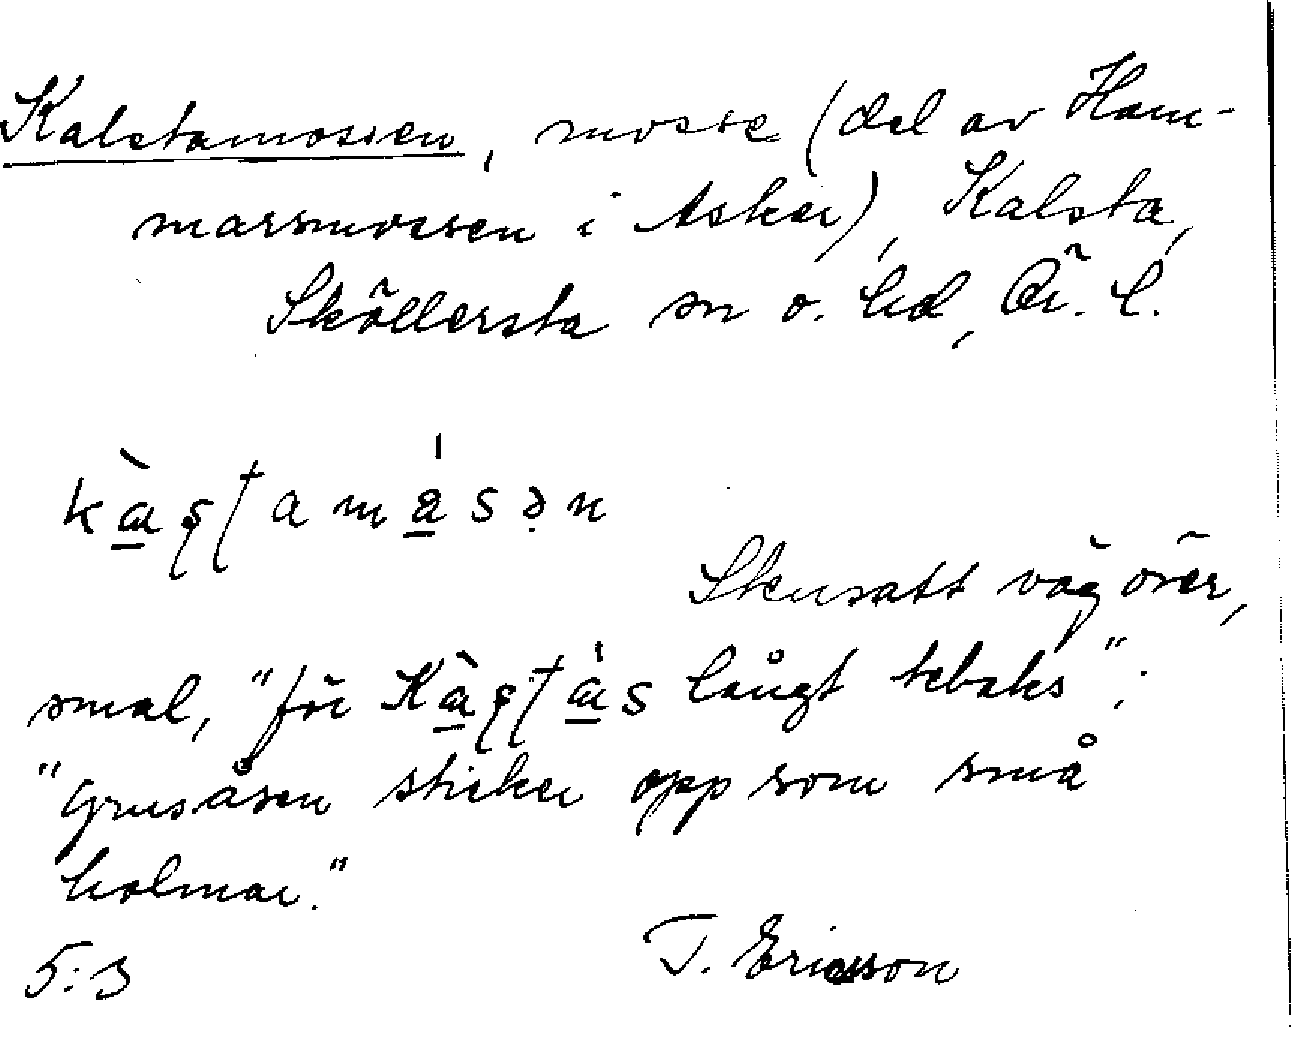 Kalstamossen, mosse (del av Ham-
marsmossen i Asker), Kalsta,
Sköllersta sn o. hd, Ör. l.
kàʂʈamåsən
Stensatt väg över,
smal, "för Kàʂʈás långt tebaks";
"Grusåsen sticker opp som små
holmar."
5:3 T. Ericsson